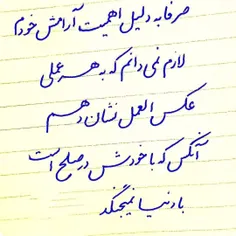 صرفا به دلیل اهمیت آرامش خودم
لازم نمی دانم که به هر عملی
عکس العمل نشان دهم
آنکس که با خودش در صلح است
با دنیا نمیجنگد